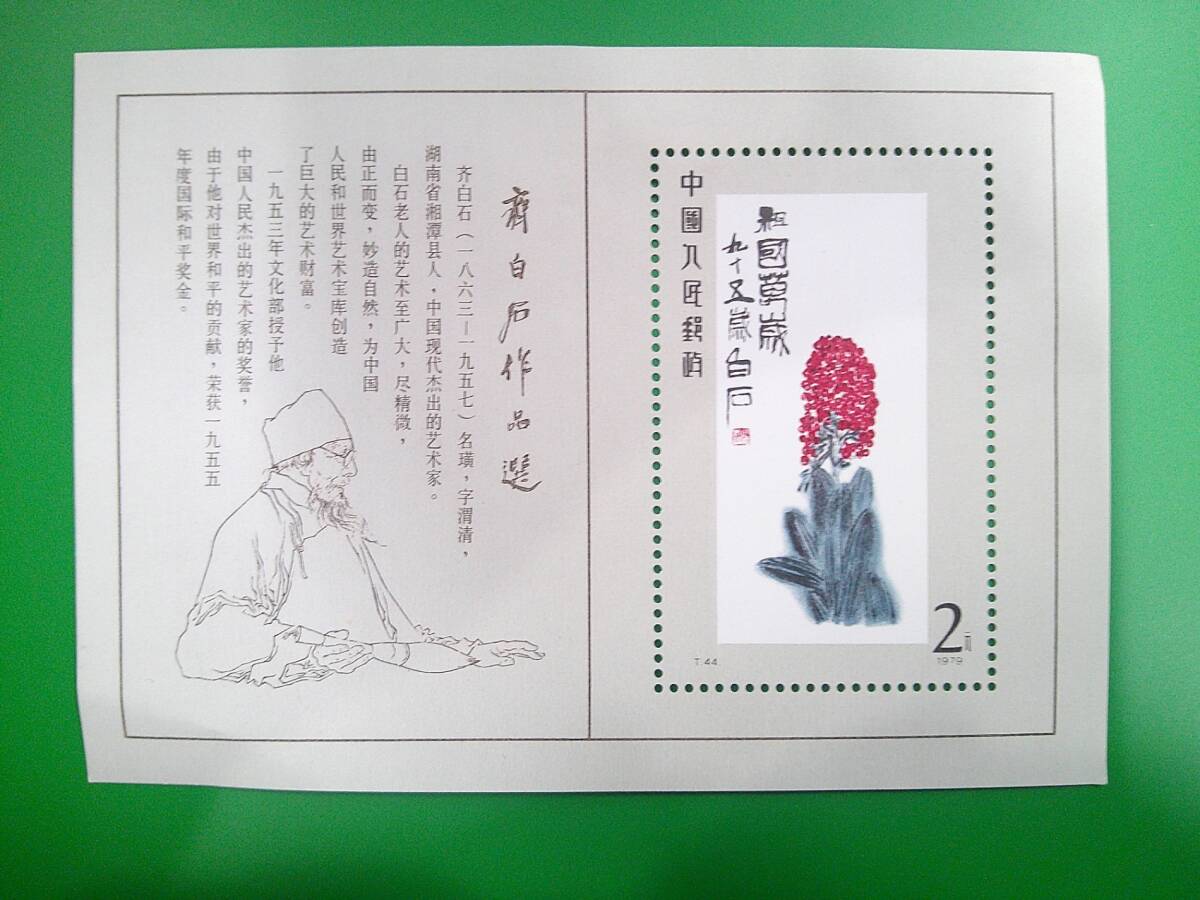 中國人民郵政
祖國萬歲
九十五歲白石
T.44
2元
1979
齊白石作品選
齐白石（一八六三—一九五七）名璜，字渭清，
湖南省湘潭县人，中国现代杰出的艺术家。
白石老人的艺术至广大，尽精微，
由正而变，妙造自然，为中国
人民和世界艺术宝库创造
了巨大的艺术财富。
一九五三年文化部授予他
中国人民杰出的艺术家的奖誉，
由于他对世界和平的贡献，荣获一九五五
年度国际和平奖金。